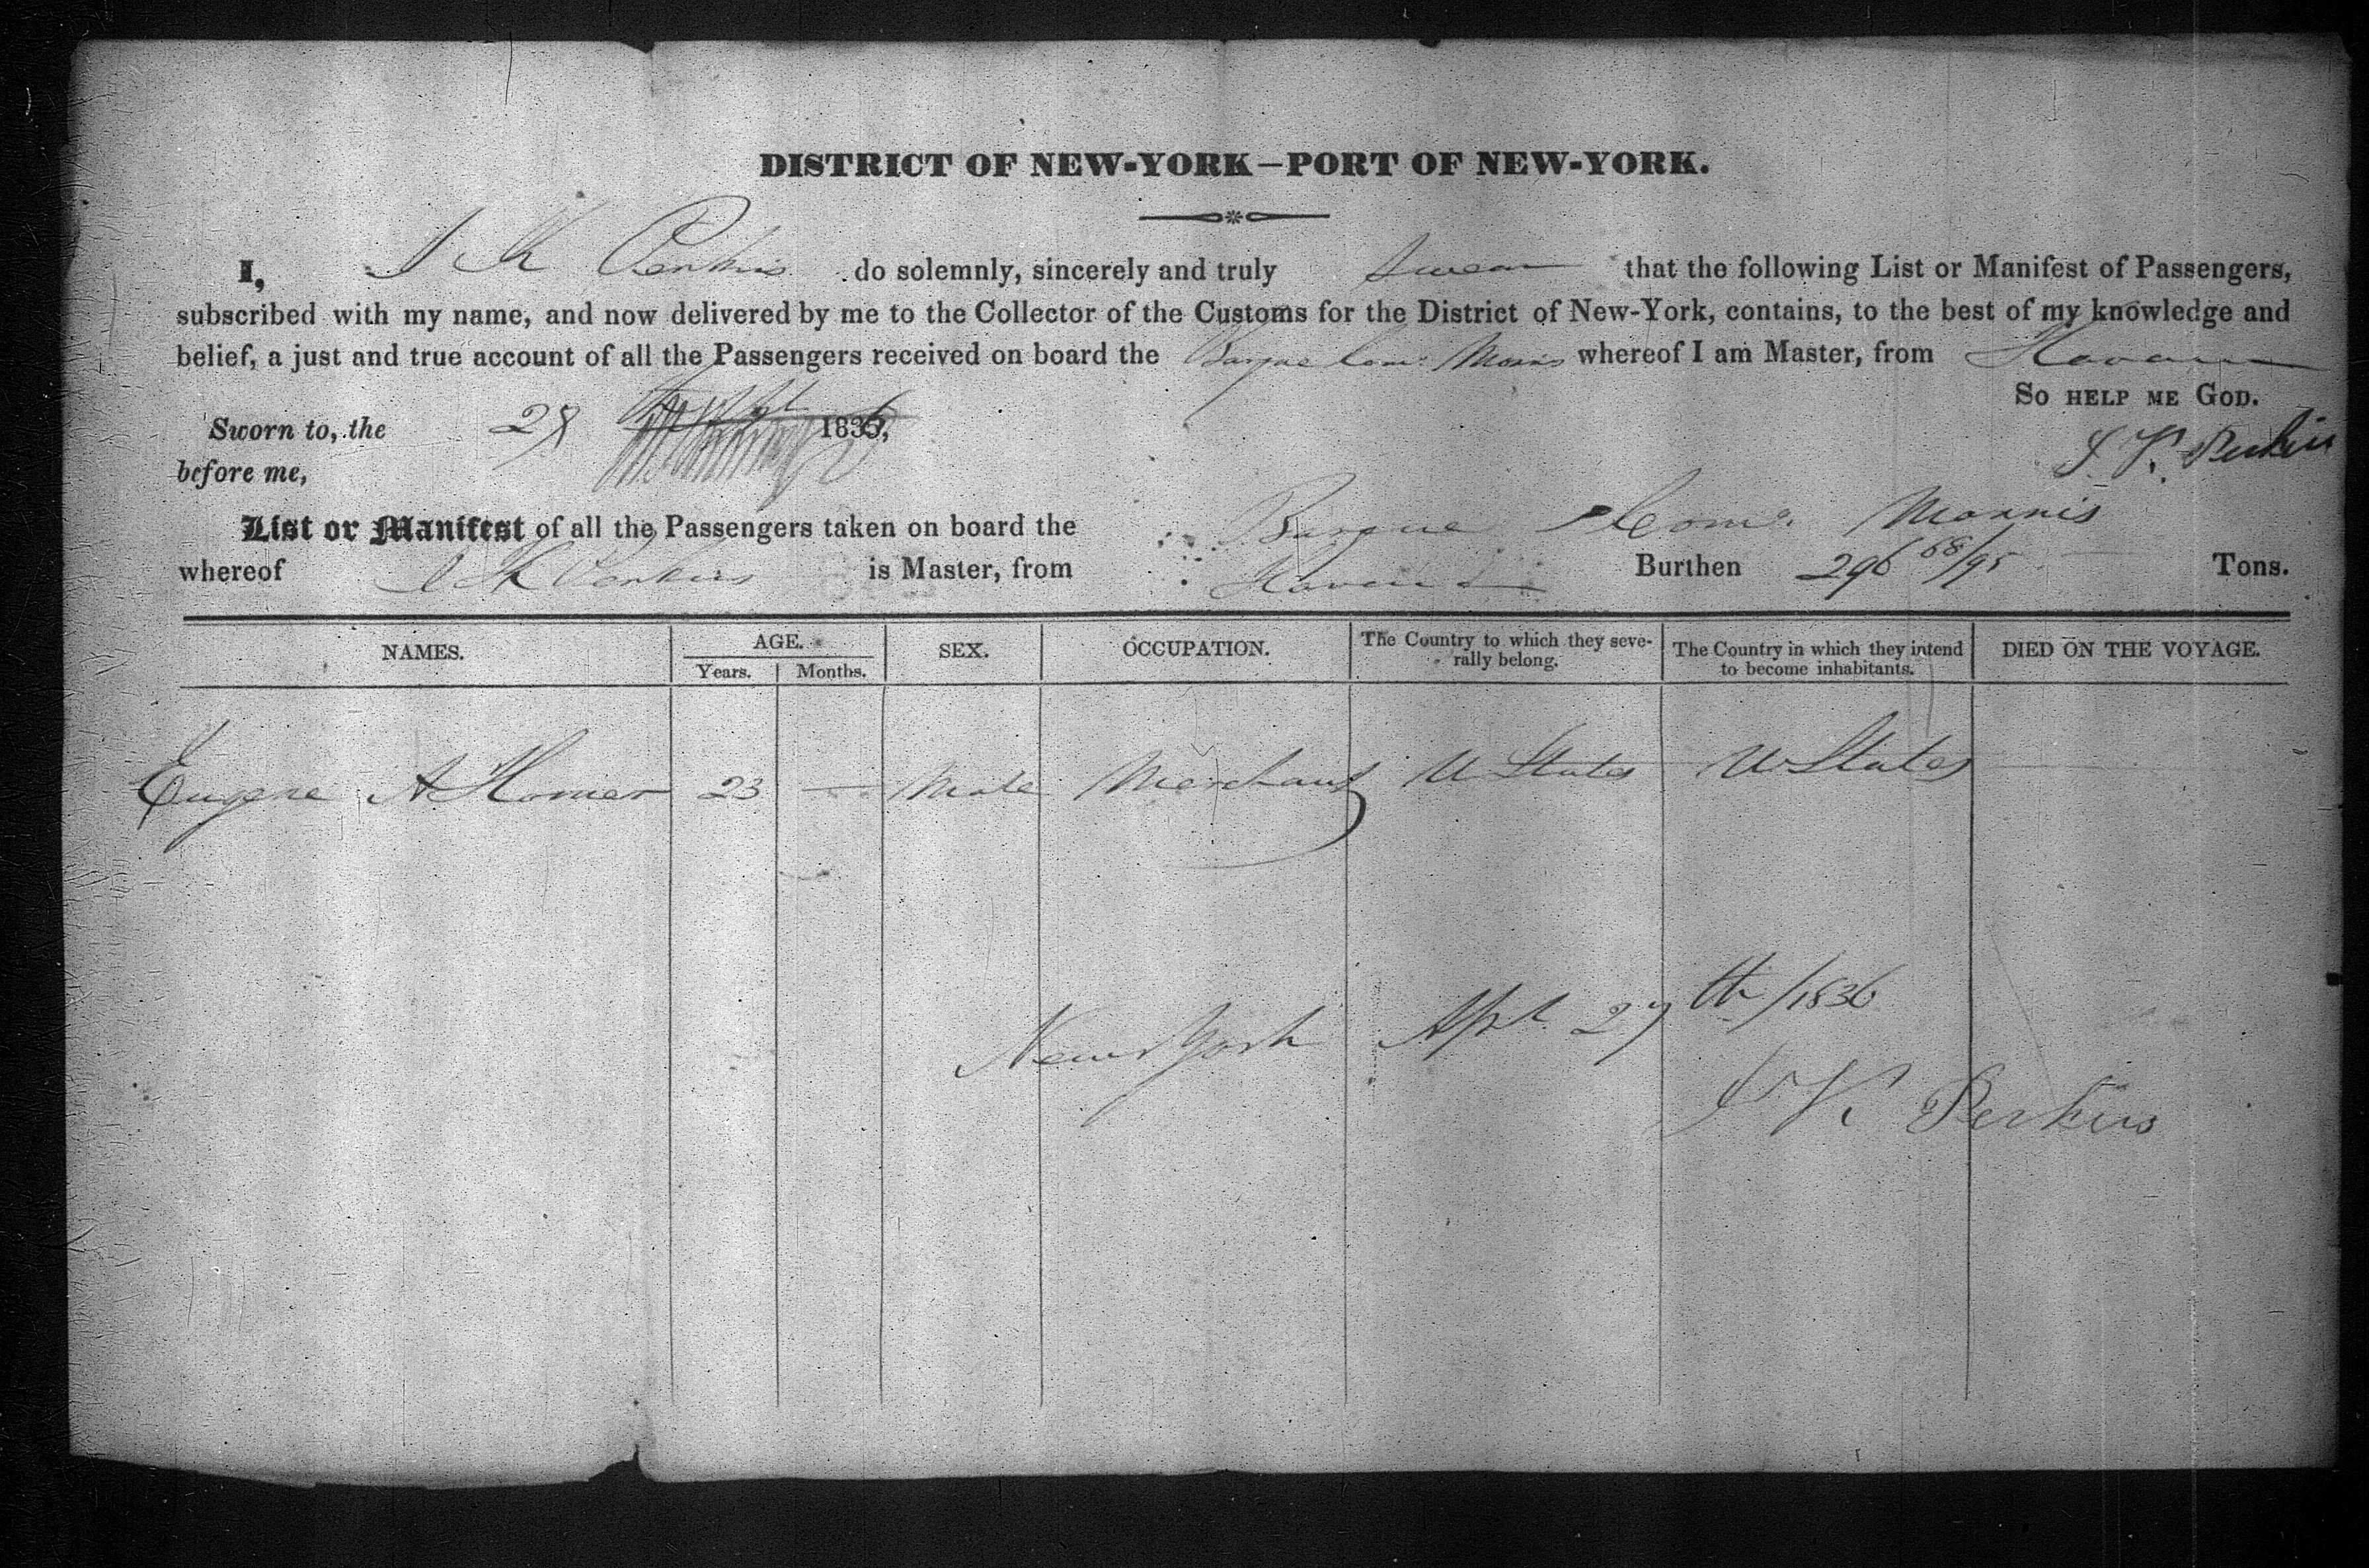 DISTRICT OF NEW-YORK—PORT OF NEW-YORK.
I, J K Perkins do solemnly, sincerely and truly swear that the following List or Manifest of Passengers,
subscribed with my name, and now delivered by me to the Collector of the Customs for the District of New-York, contains, to the best of my knowledge and
belief, a just and true account of all the Passengers received on board the Barque Com. Morris whereof I am Master, from Havana
So HELP ME GOD.
Sworn to, the 28 1836,
J K Perkins
before me,
List or Manifest of all the Passengers taken on board the Barque Com. Morris
whereof J K Perkins is Master, from Havana Burthen 296 68/95 Tons.
NAMES. AGE. Years. Months. SEX. OCCUPATION. The Country to which they severally belong. The Country in which they intend to become inhabitants. DIED ON THE VOYAGE.
Eugene A Homer 23 — Male Merchant U States U States
New York Apl. 27th /1836
J K Perkins